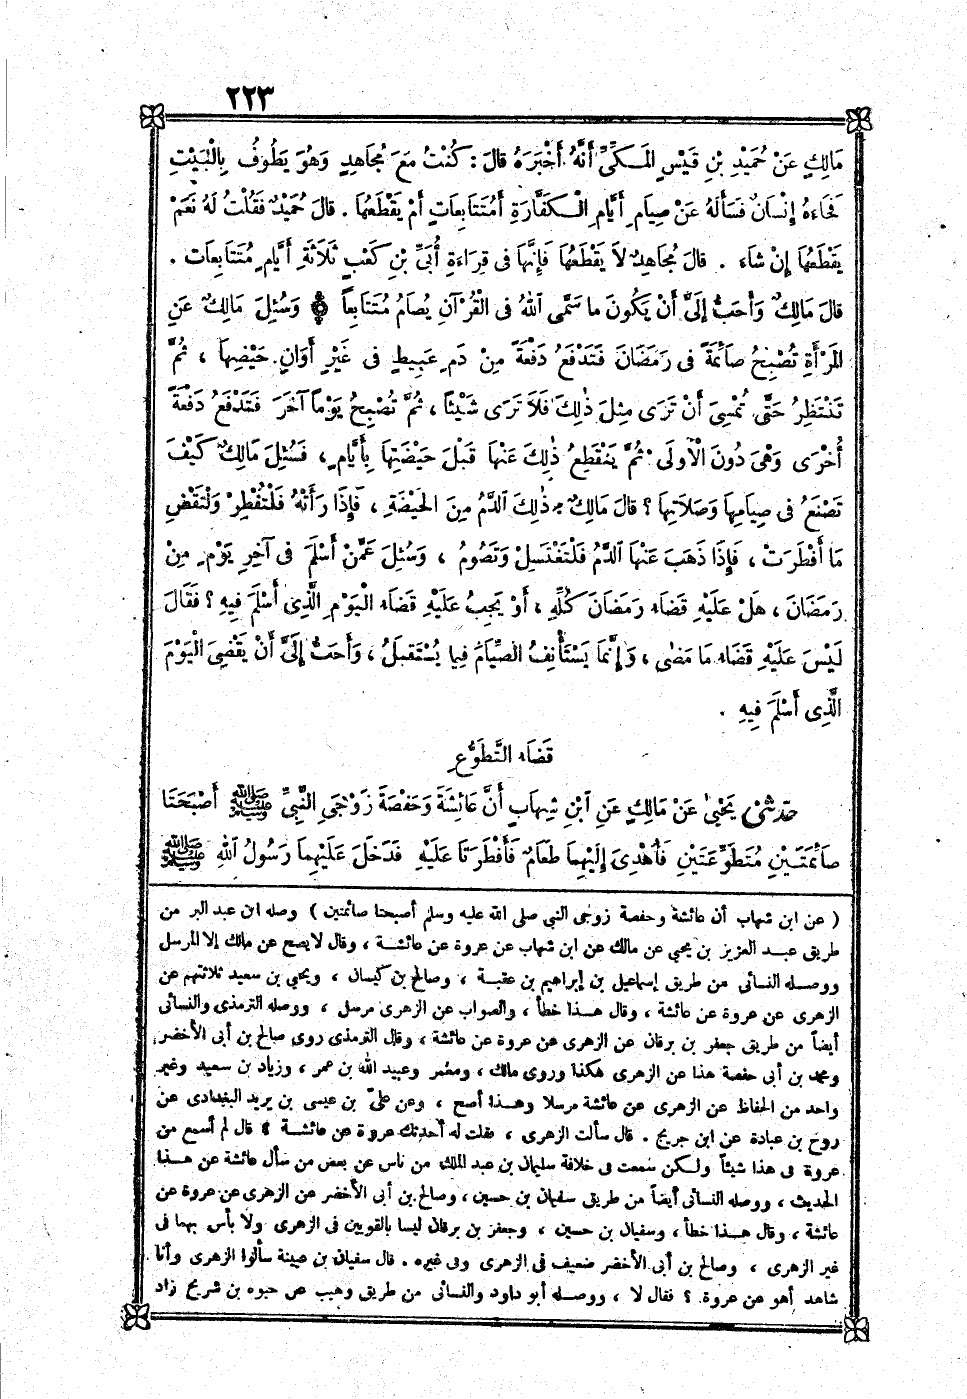 ٢٢٣
مَالِكٍ عَنْ حُمَيْدِ بْنِ قَيْسٍ الْمَكِّىِّ أَنَّهُ أَخْبَرَهُ قَالَ : كُنْتُ مَعَ مُجَاهِدٍ وَهُوَ يَطُوفُ بِالْبَيْتِ
فَجَاءَهُ إِنْسَانٌ فَسَأَلَهُ عَنْ صِيَامِ أَيَّامِ الْكَفَّارَةِ أَمُتَتَابِعَاتٍ أَمْ يَقْطَعُهَا . قَالَ حُمَيْدٌ فَقُلْتُ لَهُ نَعَمْ
يَقْطَعُهَا إِنْ شَاءَ . قَالَ مُجَاهِدٌ لاَ يَقْطَعُهَا فَإِنَّهَا فِى قِرَاءَةِ أُبَىِّ بْنِ كَعْبٍ ثَلاَثَةِ أَيَّامٍ مُتَتَابِعَاتٍ .
قَالَ مَالِكٌ وَأَحَبُّ إِلَىَّ أَنْ يَكُونَ مَا سَمَّى اللهُ فِى الْقُرْآنِ يُصَامُ مُتَتَابِعاً ۞ وَسُئِلَ مَالِكٌ عَنِ
الْمَرْأَةِ تُصْبِحُ صَائِمَةً فِى رَمَضَانَ فَتَدْفَعُ دَفْعَةً مِنْ دَمٍ عَبِيطٍ فِى غَيْرِ أَوَانِ حَيْضِهَا ، ثُمَّ
تَنْتَظِرُ حَتَّى تُمْسِىَ أَنْ تَرَى مِثْلَ ذٰلِكَ فَلاَ تَرَى شَيْئًا ، ثُمَّ تُصْبِحُ يَوْماً آخَرَ فَتَدْفَعُ دَفْعَةً
أُخْرَى وَهِىَ دُونَ الْأُولَى ثُمَّ يَنْقَطِعُ ذٰلِكَ عَنْهَا قَبْلَ حَيْضَتِهَا بِأَيَّامٍ ، فَسُئِلَ مَالِكٌ كَيْفَ
تَصْنَعُ فِى صِيَامِهَا وَصَلاَتِهَا ؟ قَالَ مَالِكٌ ذٰلِكَ الدَّمُ مِنَ الْحَيْضَةِ ، فَإِذَا رَأَتْهُ فَلْتُفْطِرْ وَلْتَقْضِ
مَا أَفْطَرَتْ ، فَإِذَا ذَهَبَ عَنْهَا الدَّمُ فَلْتَغْتَسِلْ وَتَصُومُ ، وَسُئِلَ عَمَّنْ أَسْلَمَ فِى آخِرِ يَوْمٍ مِنْ
رَمَضَانَ ، هَلْ عَلَيْهِ قَضَاءُ رَمَضَانَ كُلِّهِ ، أَوْ يَجِبُ عَلَيْهِ قَضَاءُ الْيَوْمِ الَّذِى أَسْلَمَ فِيهِ ؟ فَقَالَ
لَيْسَ عَلَيْهِ قَضَاءُ مَا مَضَى ، وَإِنَّمَا يَسْتَأْنِفُ الصِّيَامَ فِيمَا يُسْتَقْبَلُ ، وَأَحَبُّ إِلَىَّ أَنْ يَقْضِىَ الْيَوْمَ
الَّذِى أَسْلَمَ فِيهِ .
قَضَاءُ التَّطَوُّعِ
حَدَّثَنِى يَحْيَى عَنْ مَالِكٍ عَنِ ابْنِ شِهَابٍ أَنَّ عَائِشَةَ وَحَفْصَةَ زَوْجَىِ النَّبِىِّ ﷺ أَصْبَحَتَا
صَائِمَتَيْنِ مُتَطَوِّعَتَيْنِ فَأُهْدِىَ إِلَيْهِمَا طَعَامٌ فَأَفْطَرَتَا عَلَيْهِ فَدَخَلَ عَلَيْهِمَا رَسُولُ اللهِ ﷺ
( عن ابن شهاب أن عائشة وحفصة زوجى النبي صلى الله عليه وسلم أصبحتا صائمتين ) وصله ابن عبد البر من
طريق عبد العزيز بن يحي عن مالك عن ابن شهاب عن عروة عن عائشة ، وقال لا يصح عن مالك إلا المرسل
ووصله النسائى من طريق إسماعيل بن إبراهيم بن عقبة ، وصالح بن كيسان ، ويحي بن سعيد ثلاثتهم عن
الزهرى عن عروة عن عائشة ، وقال هذا خطأ ، والصواب عن الزهرى مرسل ، ووصله الترمذى والنسائى
أيضاً من طريق جعفر بن برقان عن الزهرى عن عروة عن عائشة ، وقال الترمذى روى صالح بن أبى الأخضر
ومحمد بن أبى حفصة هذا عن الزهرى هكذا وروى مالك ، ومعمر وعبيد الله بن عمر ، وزياد بن سعيد وغير
واحد من الحفاظ عن الزهرى عن عائشة مرسلا وهذا أصح ، وعن علىّ بن عيسى بن يريد البغدادى عن
روح بن عبادة عن ابن جريج . قال سألت الزهرى ، فقلت له أحدثك عروة عن عائشة ؟ قال لم أسمع من
عروة فى هذا شيئاً ولكن سمعت فى خلافة سليمان بن عبد الملك من ناس عن بعض من سأل عائشة عن هذا
الحديث ، ووصله النسائى أيضاً من طريق سفيان بن حسين ، وصالح بن أبى الأخضر عن الزهرى عن عروة عن
عائشة ، وقال هذا خطأ ، وسفيان بن حسين ، وجعفر بن برقان ليسا بالقويين فى الزهرى ولا بأس بهما فى
غير الزهرى ، وصالح بن أبى الأخضر ضعيف فى الزهرى وفى غيره . قال سفيان بن عيينة سألوا الزهرى وأنا
شاهد أهو عن عروة ؟ فقال لا ، ووصله أبو داود والنسائى من طريق وهيب عن حيوه بن شريح زاد